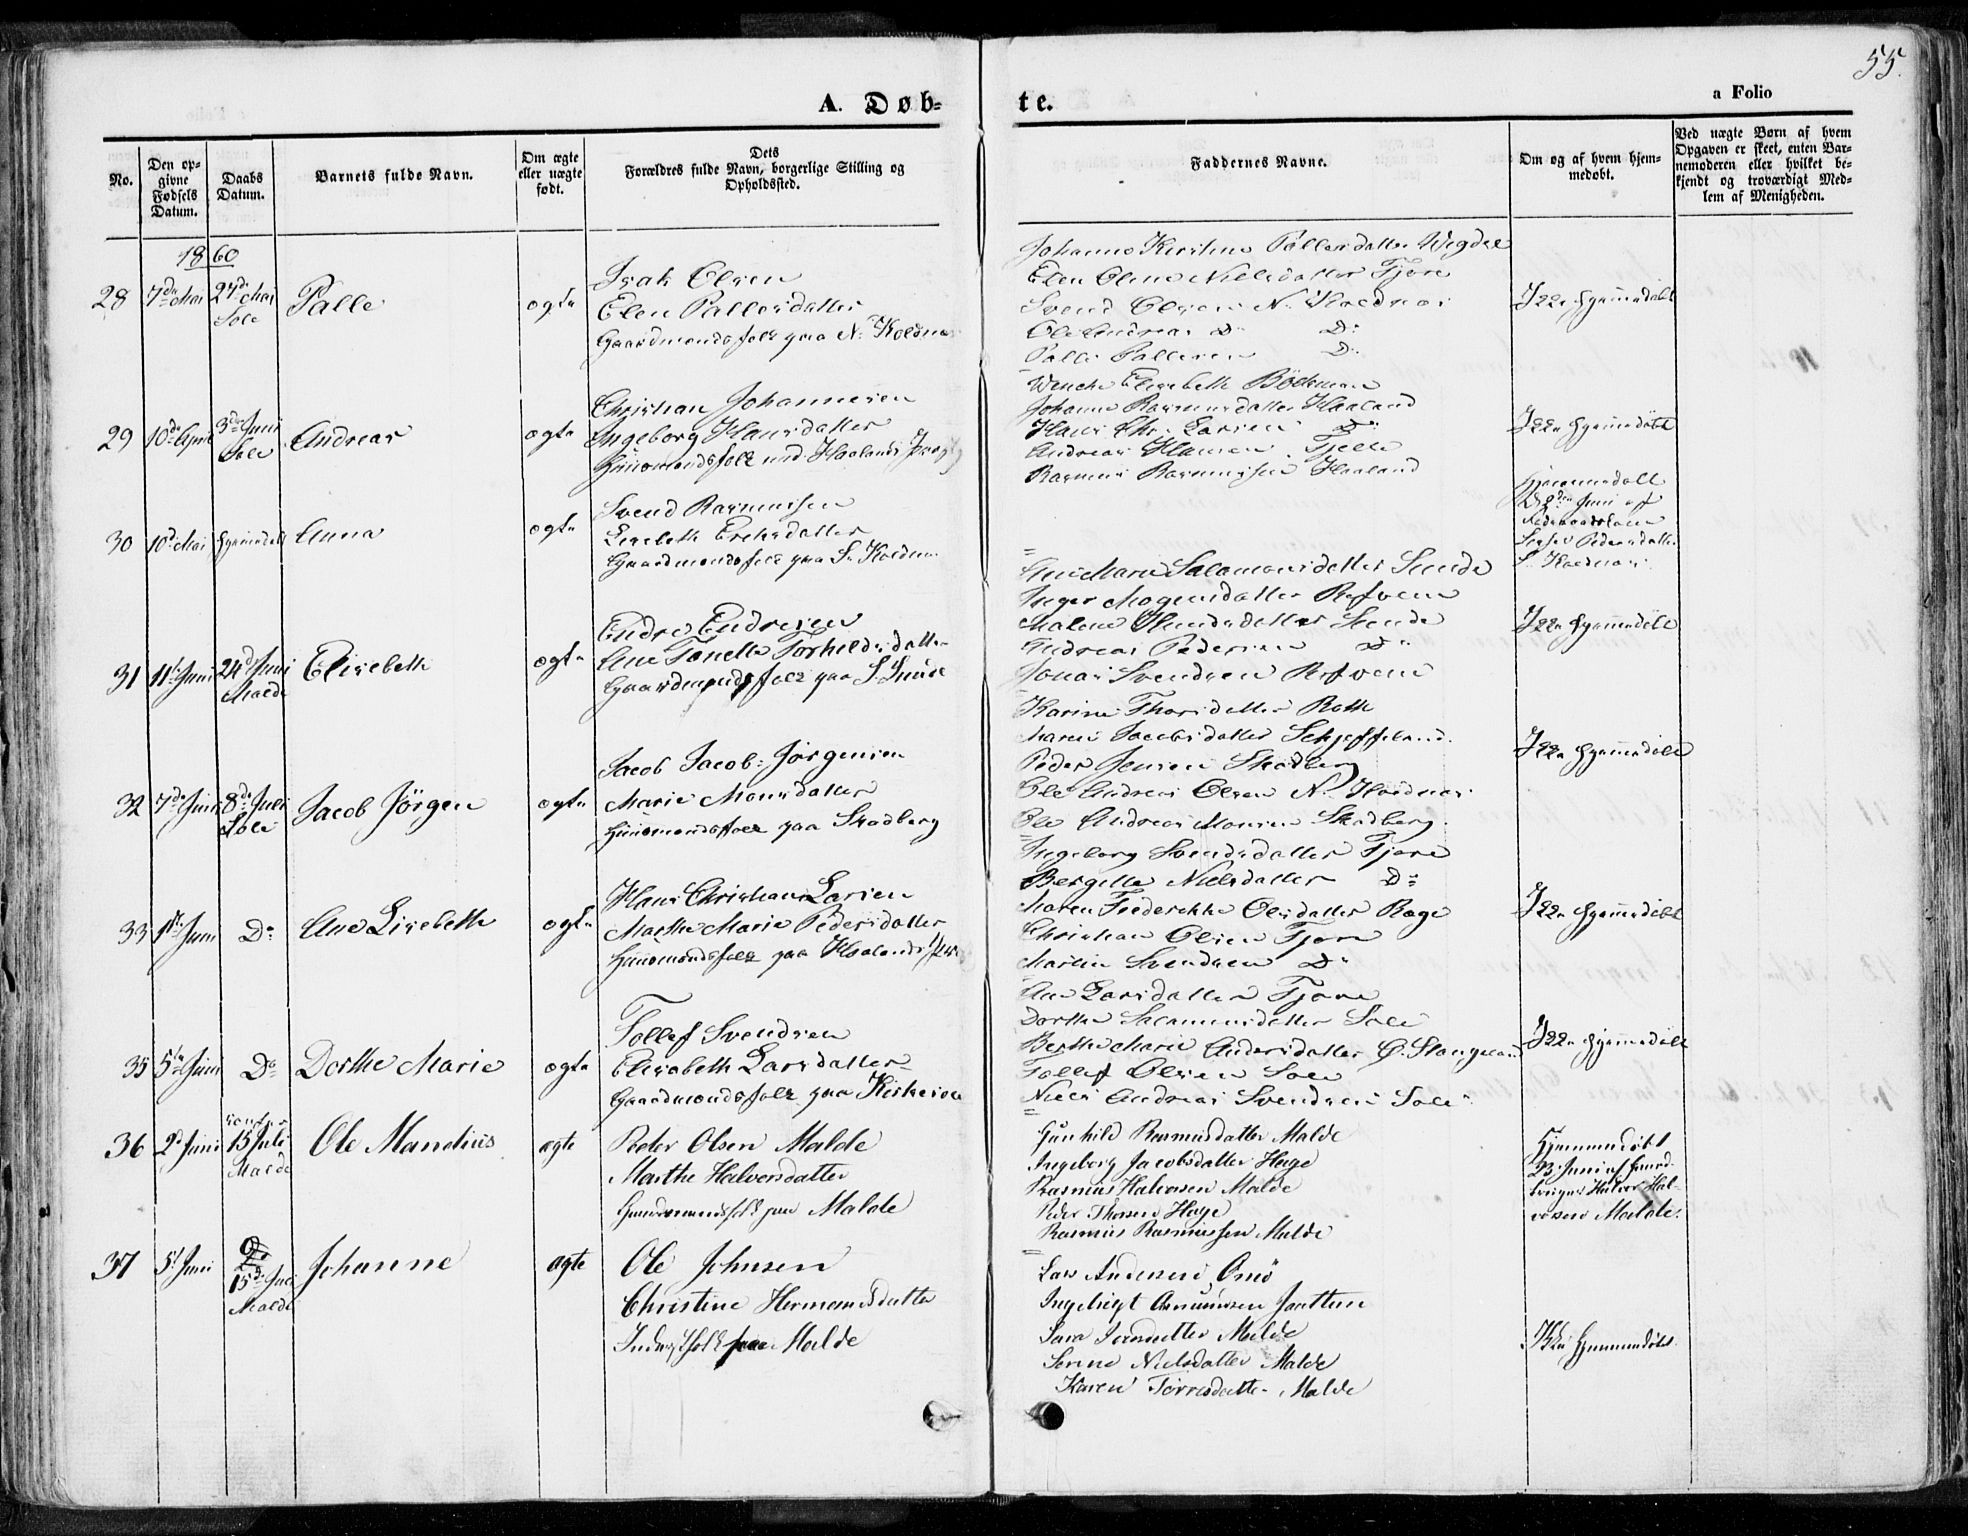 55.
A. Døb-
te.
a Folio
No.
Den op-
givne
Fødsels
Datum.
Daabs
Datum.
Barnets fulde Navn.
Om ægte
eller uægte
født.
Dets
Forældres fulde Navn, borgerlige Stilling og
Opholdssted.
Faddernes Navne.
Om og af hvem hjem-
medøbt.
Ved uægte Børn af hvem
Opgaven er skeet, enten Bar-
nemoderen eller hvilket be-
kjendt og troværdigt Med-
lem af Menigheden.
1860
28 7de Mai 27de Mai
Sole
Palle
ægte
Isak Olsen
Elen Pallesdatter
Gaardmandsfolk paa N. Koldnes
Johanne Kirstine Pallesdatter Wigdel
Elen Oline Nielsdatter Fjore
Svend Olsen N. Kolnes
Ole Andreas Do Do
Palle Pallesen Do
Ikke hjemmedøbt
29 10de April 3die Juni
Sole
Andreas
ægte
Christian Johannesen
Ingeborg Hansdatter
Huusmandsfolk ved Haalands
Wenche Elisabeth Böckman
Johanne Rasmusdatter Haaland
Hans Chr. Larsen Do
Andreas Hansen Tjelte
Rasmus Rasmussen Haaland
Ikke hjemmedøbt
30 10de Mai hjemmedøbt
Anna
ægte
Svend Rasmussen
Lisebeth Eriksdatter
Gaardmandsfolk paa S. Koldnes
Hjemmedøbt
d 2den Juni af
Pedersdatter
S. Kolnes
31 11te Juni 24de Juni
Malde
Elisebeth
ægte
Endre Endresen
Ane Tonette Torkildsdatter
Gaardmandsfolk paa S. Sunde
Ane Marie Salomonsdatter Sunde
Inger Mogensdatter Refvem
Malene Sunde
Andreas Pedersen Do
Jonas Svendsen Refvem
Ikke hjemmedøbt
32 7de Juni 8de Juli
Sole
Jacob Jörgen
ægte
Jacob Jacob: Jörgensen
Marie Monsdatter
Huusmandsfolk paa Skadberg
Karine Thorsdatter Roth
Maren Jacobsdatter
Peder Jensen Skadberg
Ole Andreas Olsen N. Kolnes
Ole Andreas Monsen Skadberg
Ikke hjemmedøbt
33 1ste Juni Do
Ane Lisebeth
ægte
Hans Christian Larsen
Marthe Marie Pedersdatter
Huusmandsfolk paa Haalands
Ingeborg Svendsdatter Fjore
Bergitte Nielsdatter Do
Maren Frederikke Olsdatter Rage
Christian Olsen Fjore
Martin Svendsen Do
Ikke hjemmedøbt
35 5te Juni Do
Dorthe Marie
ægte
Tollef Svendsen
Elisabeth Larsdatter
Gaardmandsfolk paa
Ane Larsdatter Fjore
Dorthe Salamonsdatter Sole
Berthe Marie Andersdatter Ö. Stangeland
Tollef Olsen Sole
Niels Andreas Svendsen Sole
Ikke hjemmedøbt
36 2d Juni 15 Juli
Malde
Ole Mandius
ægte
Peder Olsen Malde
Marthe Halvorsdatter
Huusmandsfolk paa Malde
Gunhild Rasmusdatter Malde
Ingeborg Jacobsdatter Hage
Rasmus Halvorsen Malde
Peder Thorsen Hage
Rasmus Rasmussen Malde
Hjemmedøbt
23 Juni af Gaard-
bruger Halvor Hal-
vorsen Malde.
37 5t Juni
15de Juli
Malde
Johanne
ægte
Ole Johnsen
Christine Hermansdatter
paa Malde
Lars Andersen Omö
Ingebrigt Jaatten
Sara Malde
Serine Nielsdatter Malde
Karen Torresdatter Malde
Ikke hjemmedøbt